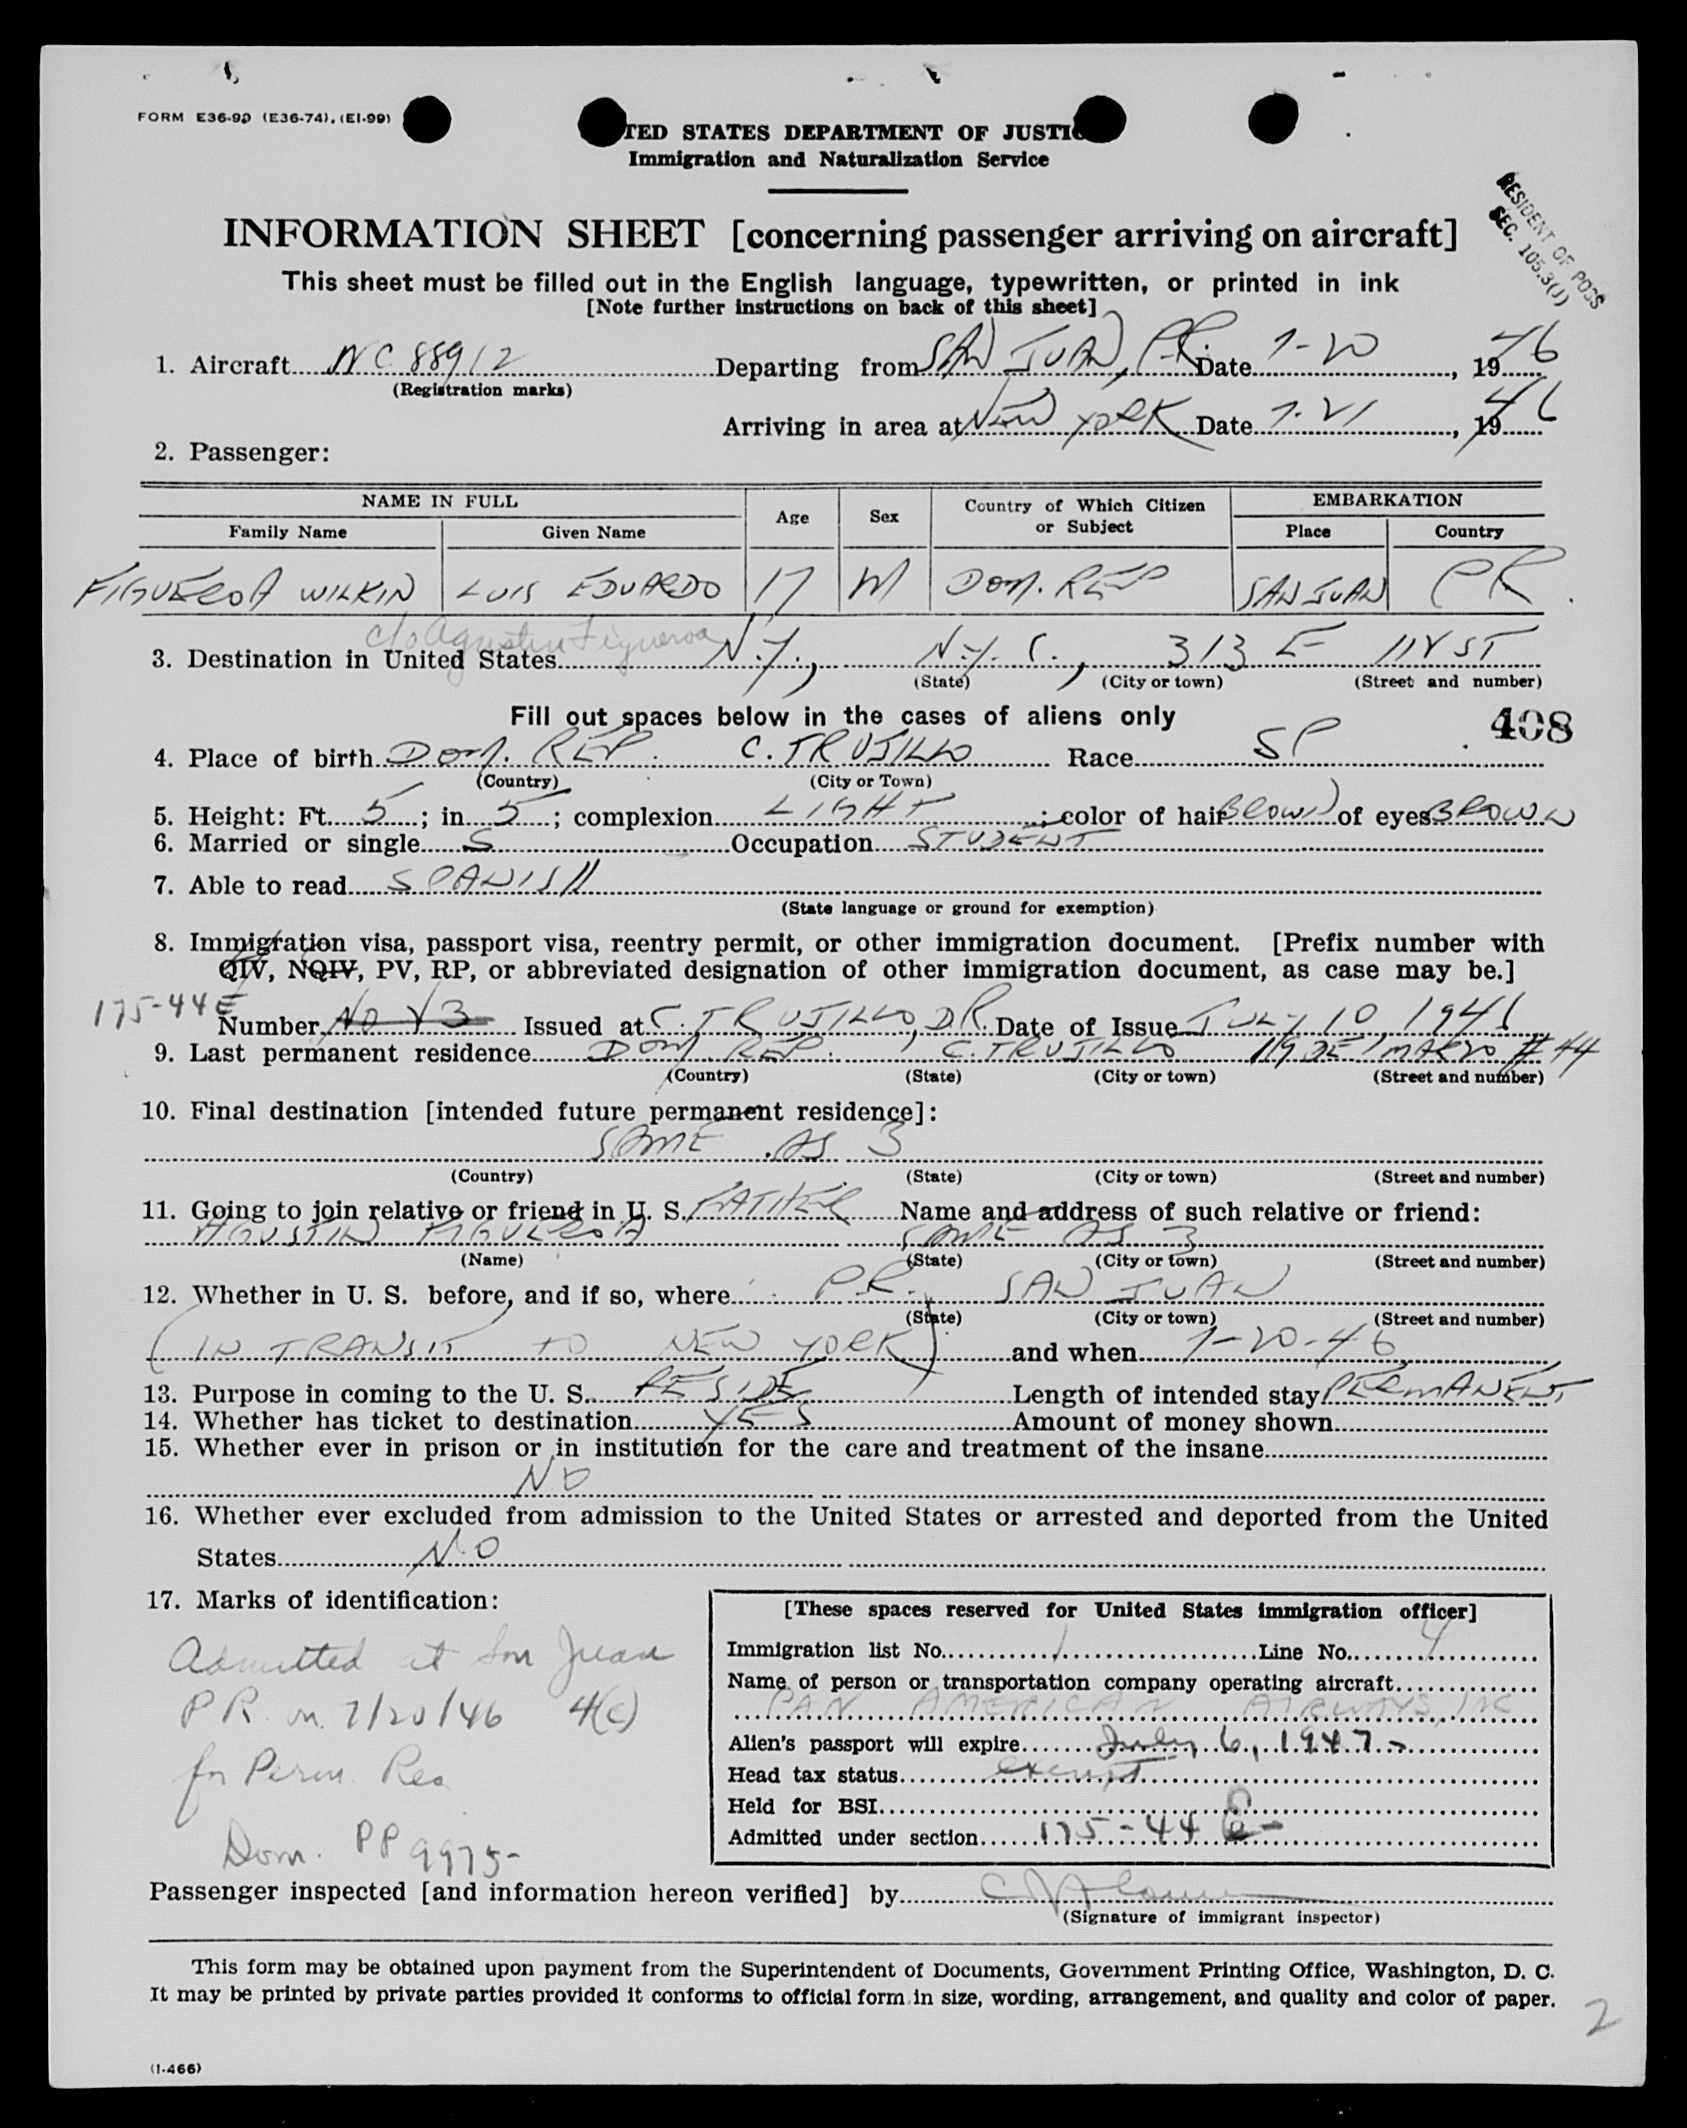 FORM E36-99 (E36-74), (E1-99)
TED STATES DEPARTMENT OF JUSTIC
Immigration and Naturalization Service
RESIDENT OF POSS
SEC. 105.3(J)
INFORMATION SHEET [concerning passenger arriving on aircraft]
This sheet must be filled out in the English language, typewritten, or printed in ink
[Note further instructions on back of this sheet]
1. Aircraft NC 88912 Departing from SAN JUAN, P.R. Date 7-20, 1946
(Registration marks)
Arriving in area at NEW YORK Date 7-21, 1946
2. Passenger:
NAME IN FULL Age Sex Country of Which Citizen or Subject EMBARKATION
Family Name Given Name Place Country
FIGUEROA WILKIN LUIS EDUARDO 17 M DOM. REP SAN JUAN PR
c/o Agustin Figueroa
3. Destination in United States N.Y., N.Y.C., 313 E 11Y ST
(State) (City or town) (Street and number)
Fill out spaces below in the cases of aliens only 408
4. Place of birth DOM. REP. C. TRUJILLO Race SP
(Country) (City or Town)
5. Height: Ft. 5; in. 5; complexion LIGHT; color of hair BROWN of eyes BROWN
6. Married or single S Occupation STUDENT
7. Able to read SPANISH
(State language or ground for exemption)
8. Immigration visa, passport visa, reentry permit, or other immigration document. [Prefix number with
QIV, NQIV, PV, RP, or abbreviated designation of other immigration document, as case may be.]
175-44E
Number NO V3 Issued at C. TRUJILLO, D.R. Date of Issue JULY 10, 1946
9. Last permanent residence DOM. REP. C. TRUJILLO 19 DE MARZO # 44
(Country) (State) (City or town) (Street and number)
10. Final destination [intended future permanent residence]:
SAME AS 3
(Country) (State) (City or town) (Street and number)
11. Going to join relative or friend in U. S. FATHER Name and address of such relative or friend:
AGUSTIN FIGUEROA SAME AS 3
(Name) (State) (City or town) (Street and number)
12. Whether in U. S. before, and if so, where P.R. SAN JUAN
(State) (City or town) (Street and number)
(IN TRANSIT TO NEW YORK) and when 7-20-46
13. Purpose in coming to the U. S. RESIDE Length of intended stay PERMANENT
14. Whether has ticket to destination YES Amount of money shown
15. Whether ever in prison or in institution for the care and treatment of the insane
NO
16. Whether ever excluded from admission to the United States or arrested and deported from the United
States NO
17. Marks of identification:
Admitted at San Juan
PR on 7/20/46 4(c)
for Perm. Res
Dom. PP 9975-
[These spaces reserved for United States immigration officer]
Immigration list No. 1 Line No. 4
Name of person or transportation company operating aircraft
PAN AMERICAN AIRWAYS, INC
Alien's passport will expire July 6, 1947
Head tax status exempt
Held for BSI
Admitted under section 175-44 E-
Passenger inspected [and information hereon verified] by
(Signature of immigrant inspector)
This form may be obtained upon payment from the Superintendent of Documents, Government Printing Office, Washington, D. C.
It may be printed by private parties provided it conforms to official form in size, wording, arrangement, and quality and color of paper.
2
(1-466)